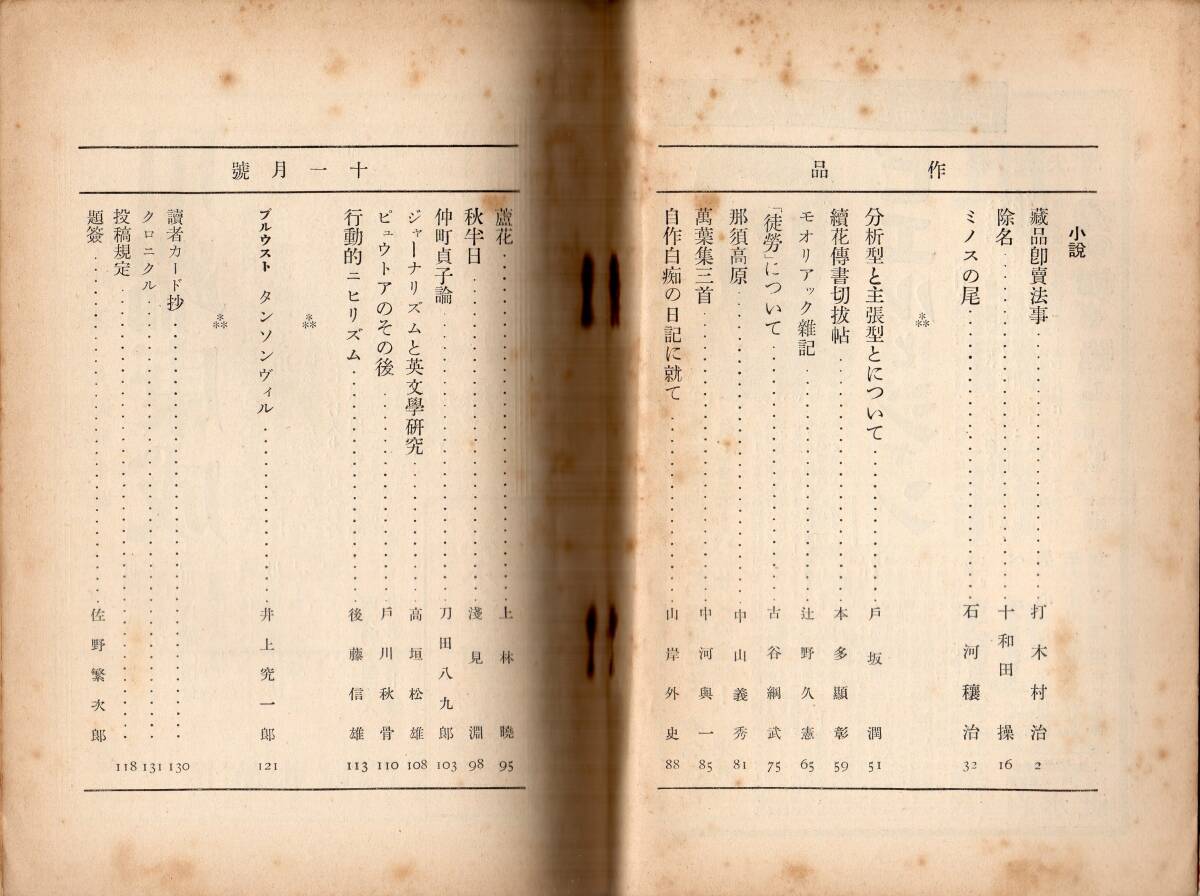 作品
小說
藏品卽賣法事 打木村治 2
除名 十和田操 16
ミノスの尾 石河穰治 32
⁂
分析型と主張型とについて 戶坂潤 51
續花傳書切拔帖 本多顯彰 59
モオリアック雜記 辻野久憲 65
「徒勞」について 古谷綱武 75
那須高原 中山義秀 81
萬葉集三首 中河與一 85
自作白痴の日記に就て 山岸外史 88
十一月號
蘆花 上林曉 95
秋半日 淺見淵 98
仲町貞子論 刀田八九郎 103
ジャーナリズムと英文學硏究 高垣松雄 108
ピュウトアのその後 戶川秋骨 110
行動的ニヒリズム 後藤信雄 113
⁂
プルウスト タンソンヴィル 井上究一郎 121
⁂
讀者カード抄 130
クロニクル 131
投稿規定 118
題簽 佐野繁次郎